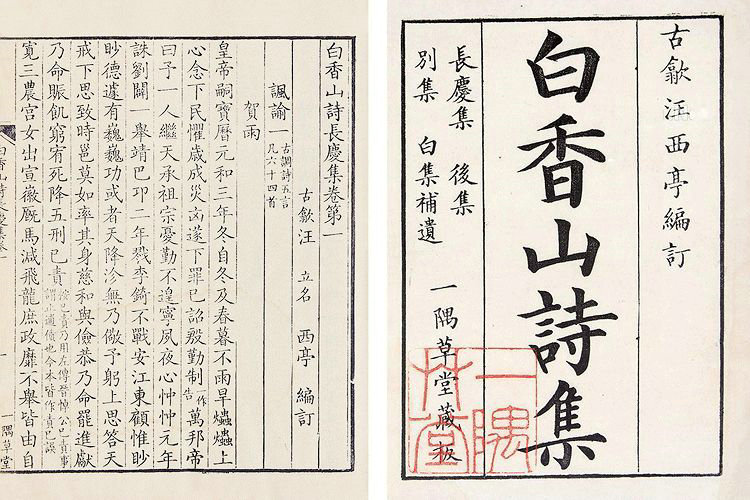 古歙汪西亭編訂
白香山詩集
長慶集 後集
別集 白集補遺
一隅草堂藏板
一隅草堂
白香山詩長慶集卷第一
古歙汪 立名 西亭 編訂
諷諭一 古調詩五言 凡六十四首
賀雨
皇帝嗣寶曆元和三年冬自冬及春暮不雨旱爞爞上
心念下民懼歲成災凶遂下罪已詔殷勤制作告萬邦帝
曰予一人繼天承祖宗憂勤不遑寧夙夜心忡忡元年
誅劉闢一舉靖巴卭二年戮李錡不戰安江東顧惟眇
眇德遽有巍巍功或者天降沴無乃儆予躬上思答天
戒下思致時邕莫如率其身慈和與儉恭乃命罷進獻
乃命賑飢窮宥死降五刑已責 已責乃用左傳晉悼公已責事 謂止逋債也今本皆作責已誤
寬三農宮女出宣徽厩馬減飛龍庶政靡不舉皆由自
白香山詩長慶集卷一
一隅草堂